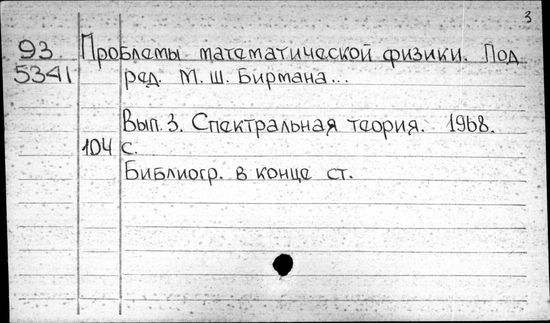 3
93 Проблемы математической физики. Под
5341 ред. М. Ш. Бирмана...
Вып. 3. Спектральная теория. 1968.
104 с.
Библиогр. в конце ст.